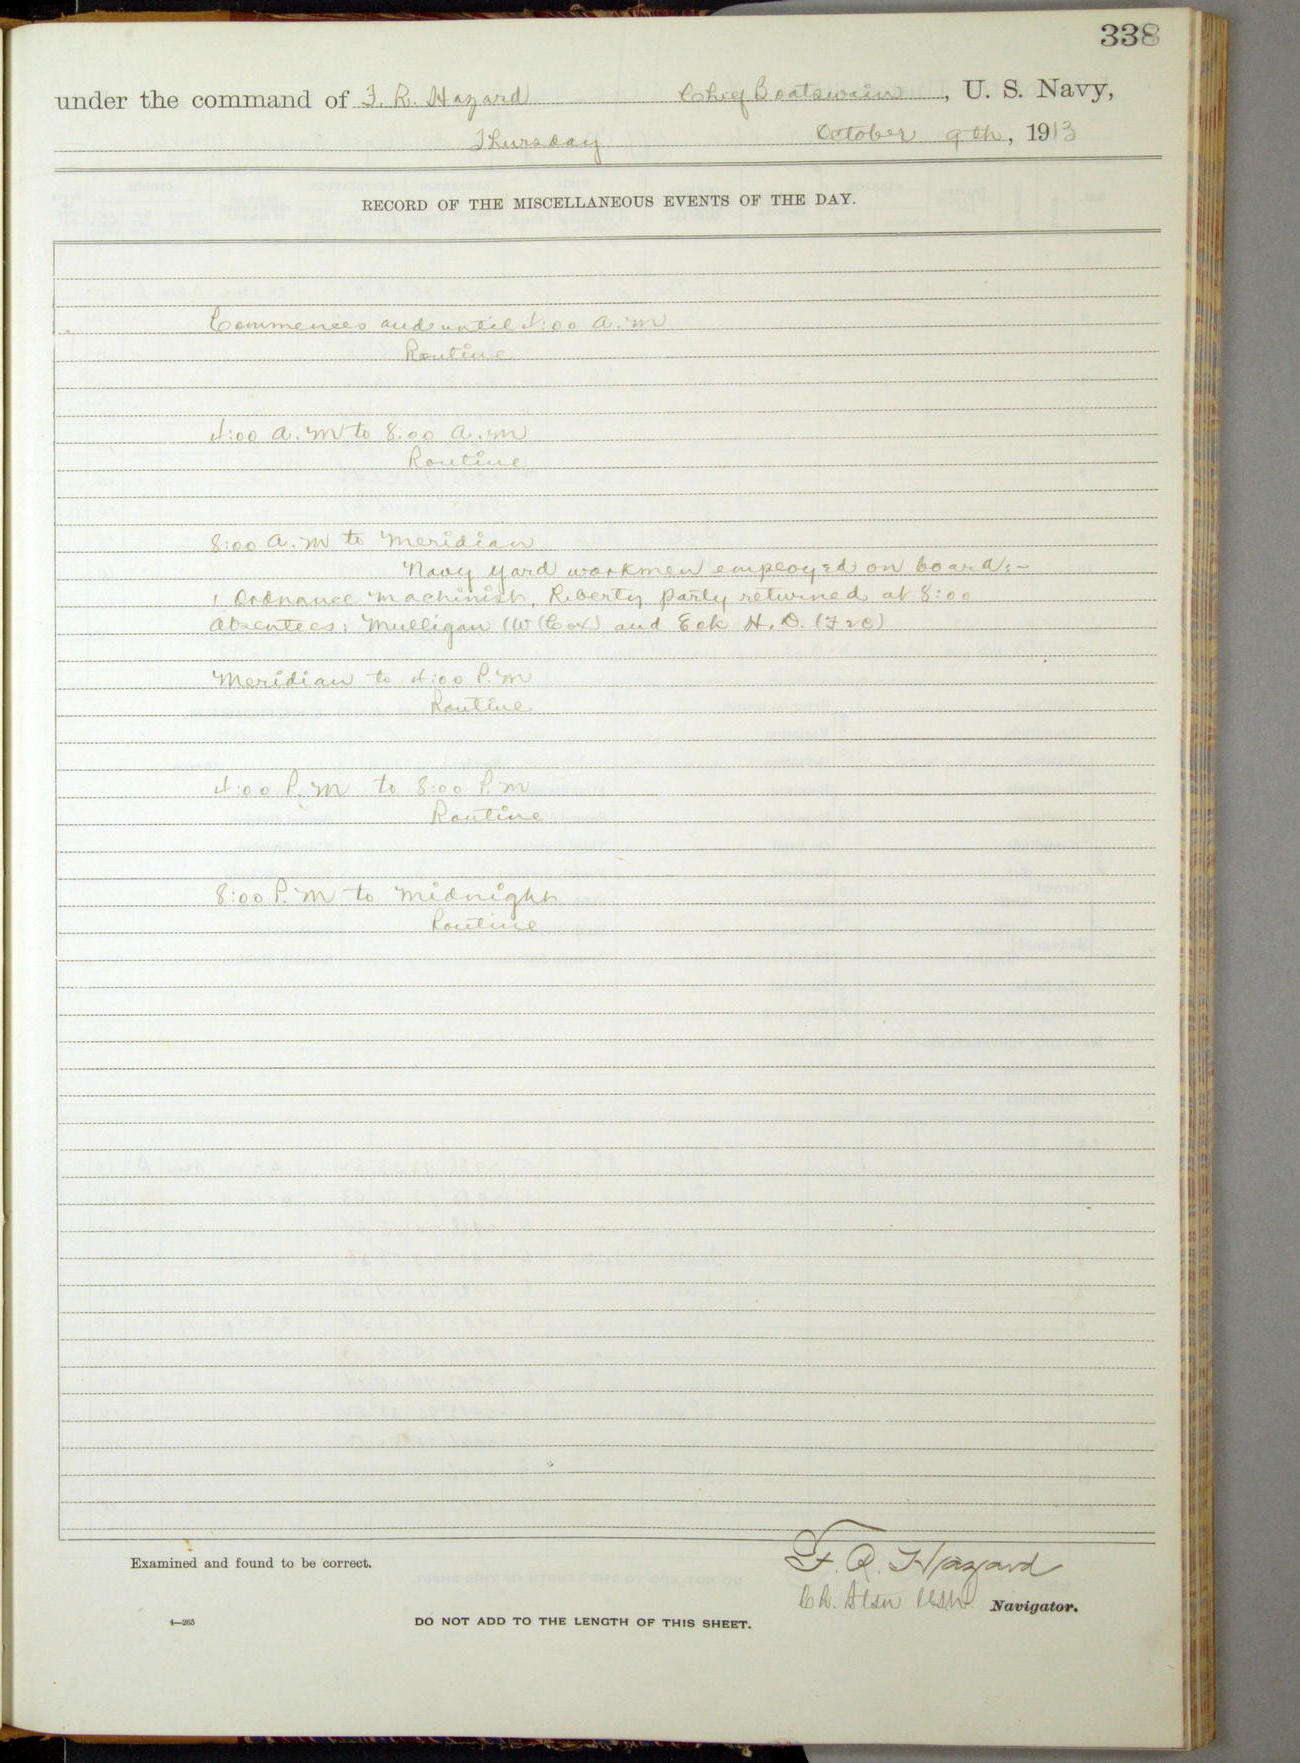 338
under the command of F. R. Hazard Chief Boatswain, U. S. Navy,
Thursday October 9th, 1913
RECORD OF THE MISCELLANEOUS EVENTS OF THE DAY.
Commences and until 4:00 A.M
Routine
4:00 A.M to 8.00 A.M
Routine
8:00 A.M to Meridian
Navy Yard workmen employed on board:-
1 Ordnance Machinist, Liberty party returned at 8:00
Absentees: Mulligan (W (Cox) and Eck H. D. (F2c)
Meridian to 4:00 P.M
Routine
4:00 P.M to 8:00 P.M
Routine
8:00 P.M to Midnight
Routine
Examined and found to be correct.
F. R. Hazard
Ch. Btsn USN. Navigator.
4—265
DO NOT ADD TO THE LENGTH OF THIS SHEET.